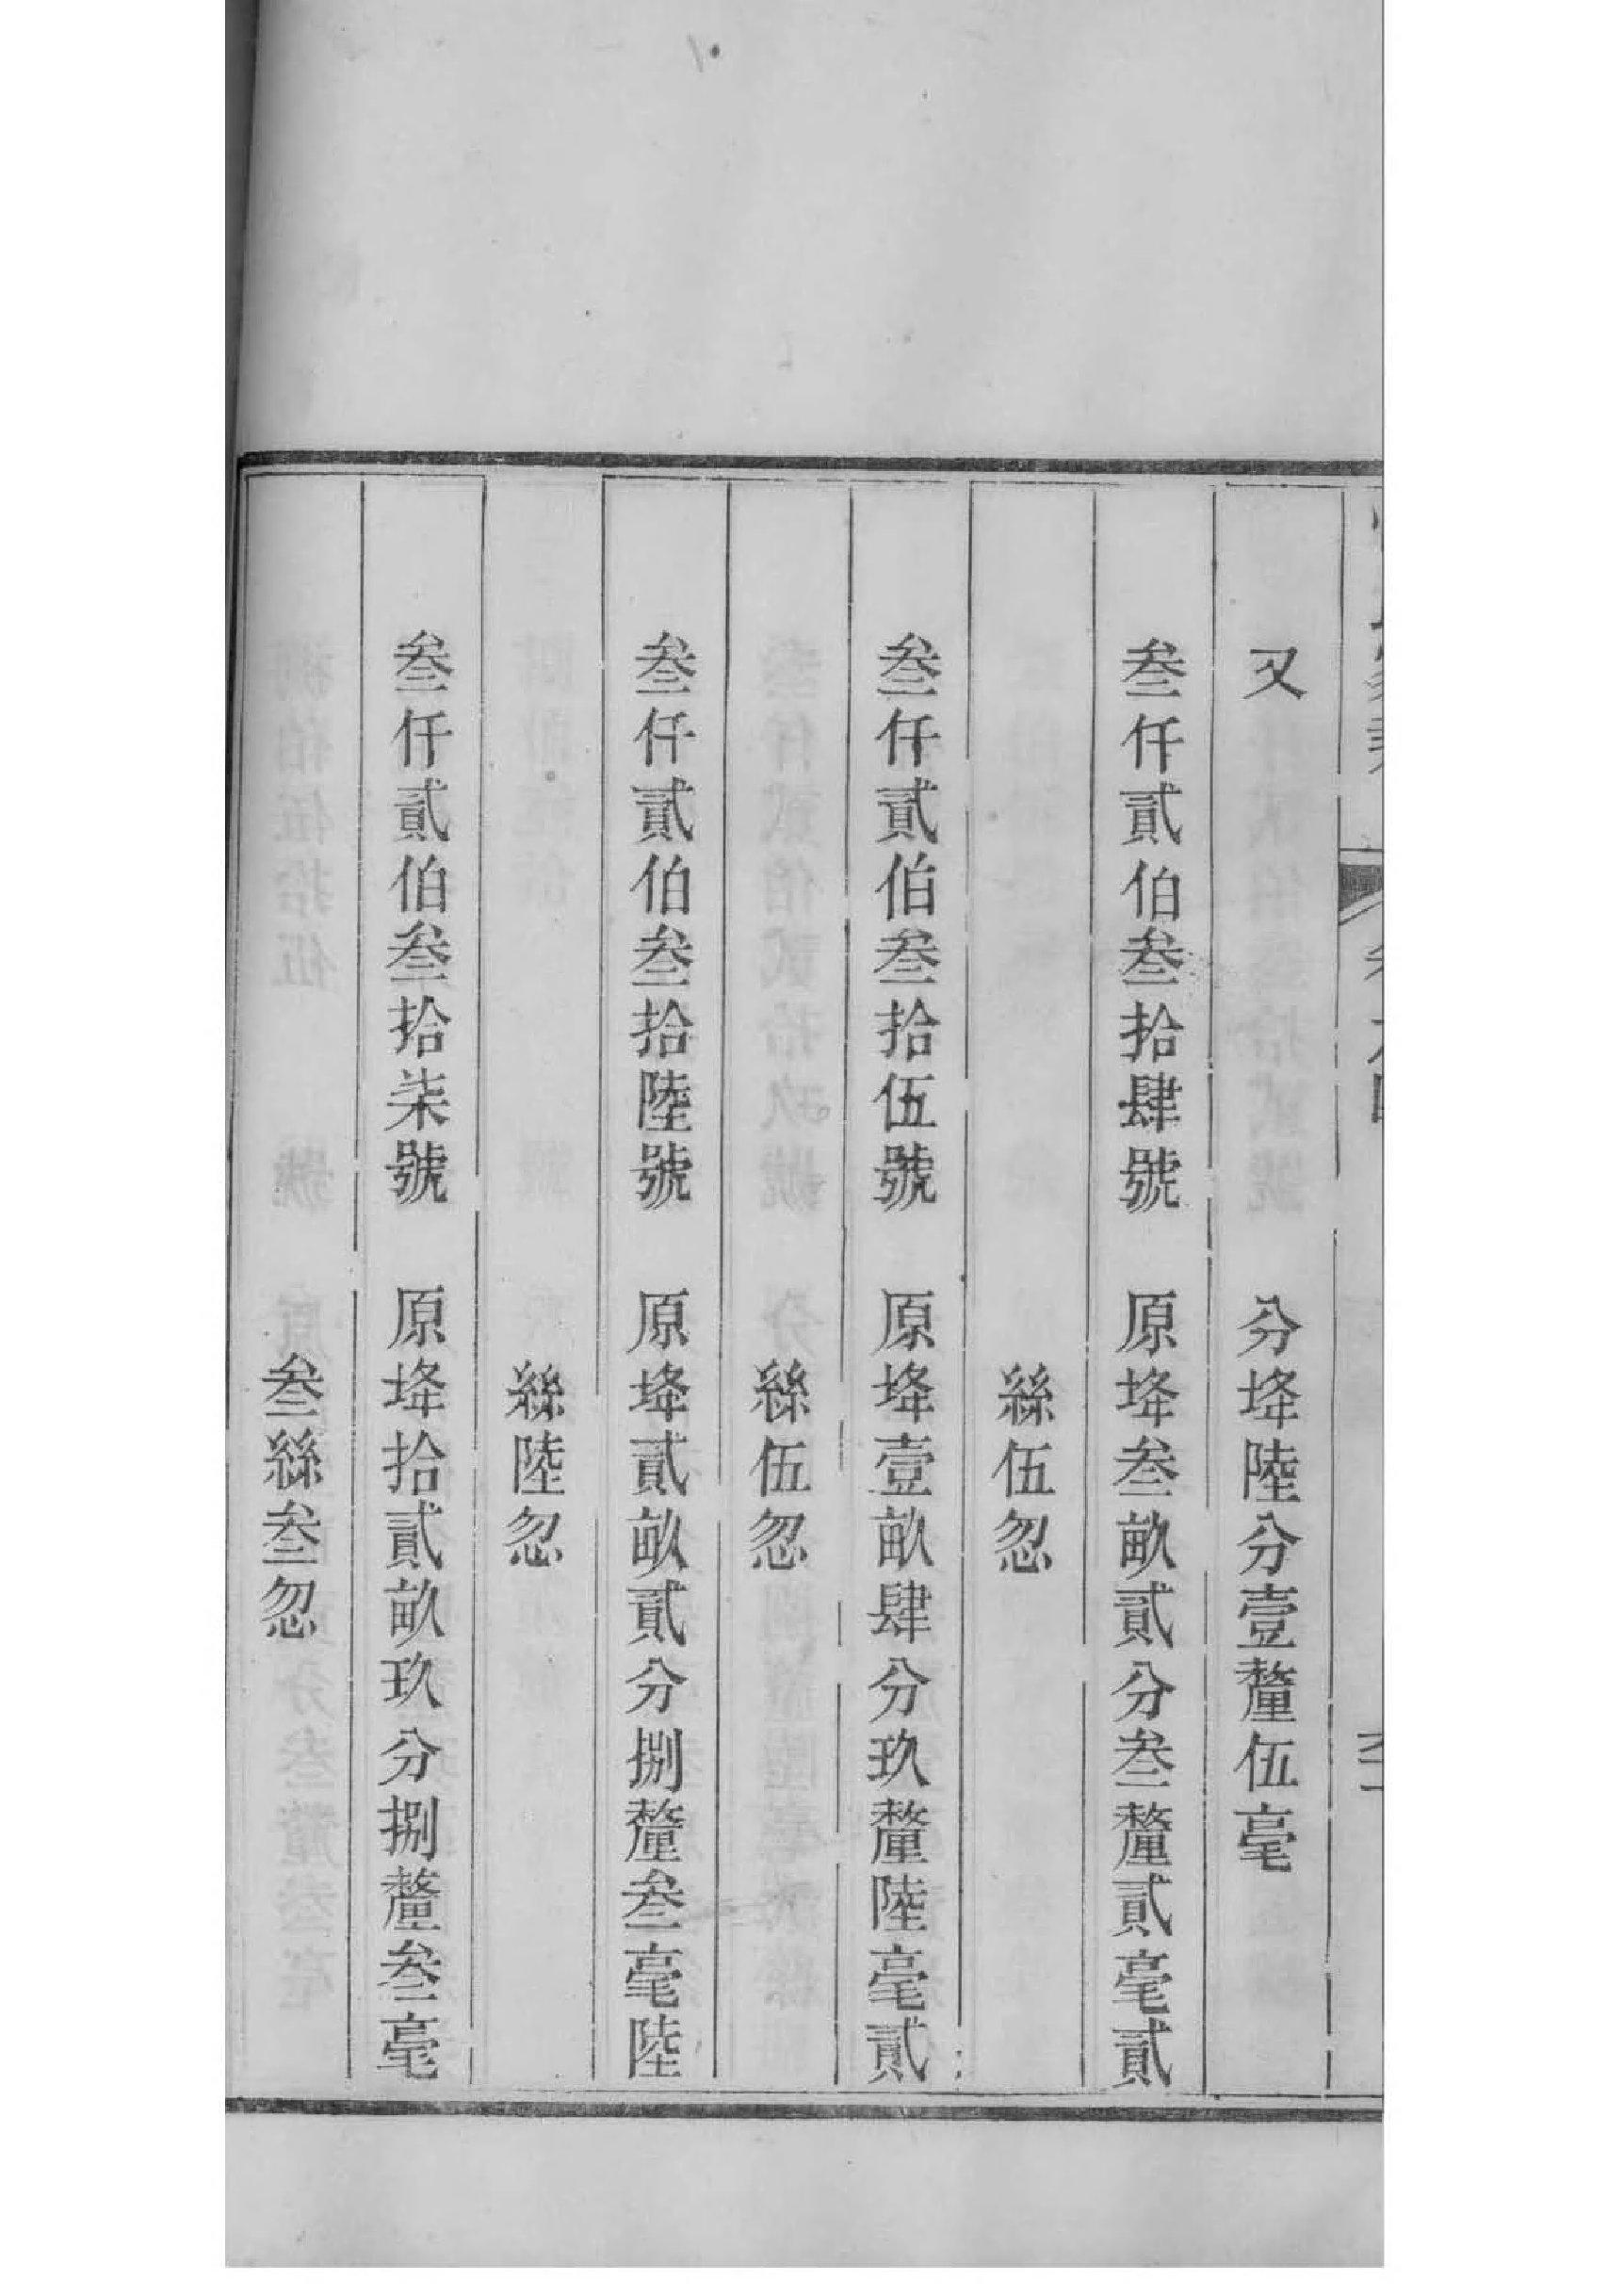 又　分埄陸分壹釐伍毫
叁仟貳伯叁拾肆號　原埄叁畝貳分叁釐貳毫貳
絲伍忽
叁仟貳伯叁拾伍號　原埄壹畝肆分玖釐陸毫貳
絲伍忽
叁仟貳伯叁拾陸號　原埄貳畝貳分捌釐叁毫陸
絲陸忽
叁仟貳伯叁拾柒號　原埄拾貳畝玖分捌釐叁毫
叁絲叁忽